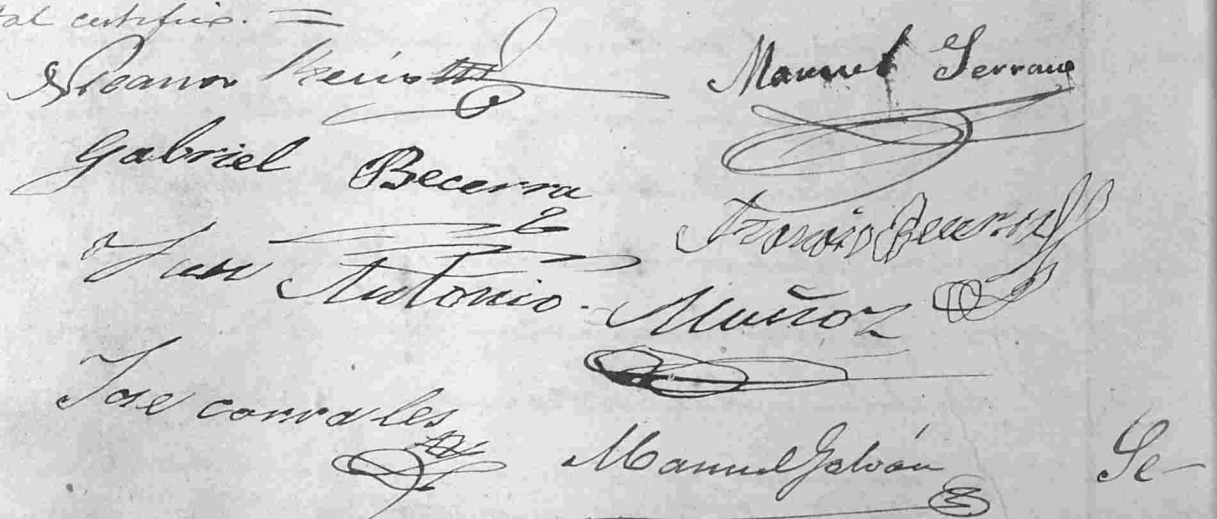 tal certifico. =
Manuel Serrano
Gabriel Becerra
Becerra
Juan Antonio Muñoz
Jose corrales
Manuel Galván Se-